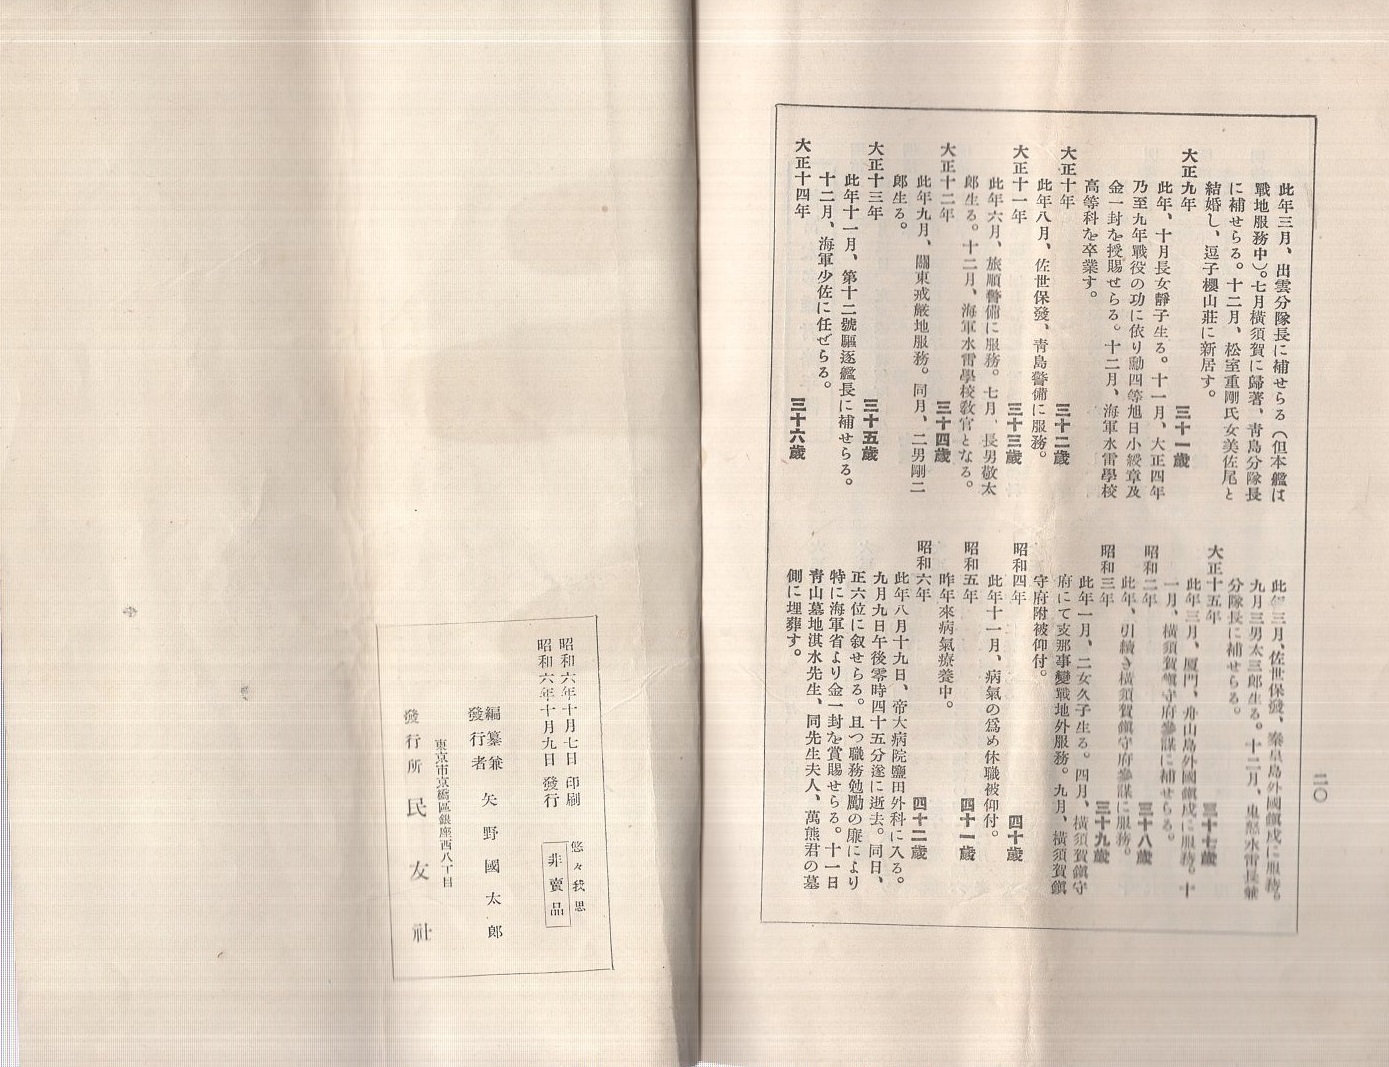 二〇
此年三月、出雲分隊長に補せらる（但本艦は
戰地服務中）。七月横須賀に歸著、青島分隊長
に補せらる。十二月、松室重剛氏女美佐尾と
結婚し、逗子櫻山莊に新居す。
大正九年　三十一歳
此年、十月長女靜子生る。十一月、大正四年
乃至九年戰役の功に依り勳四等旭日小綬章及
金一封を授賜せらる。十二月、海軍水雷學校
高等科を卒業す。
大正十年　三十二歳
此年八月、佐世保發、青島警備に服務。
大正十一年　三十三歳
此年六月、旅順警備に服務。七月、長男敬太
郎生る。十二月、海軍水雷學校敎官となる。
大正十二年　三十四歳
此年九月、關東戒嚴地服務。同月、二男剛二
郎生る。
大正十三年　三十五歳
此年十一月、第十二號驅逐艦長に補せらる。
十二月、海軍少佐に任ぜらる。
大正十四年　三十六歳
此年三月、佐世保發、秦皇島外國鎭戍に服務。
九月三男太三郎生る。十二月、鬼怒水雷長兼
分隊長に補せらる。
大正十五年　三十七歳
此年三月、厦門、舟山島外國鎭戍に服務。十
一月、横須賀鎭守府參謀に補せらる。
昭和二年　三十八歳
此年、引續き横須賀鎭守府參謀に服務。
昭和三年　三十九歳
此年一月、二女久子生る。四月、横須賀鎭守
府にて支那事變戰地外服務。九月、横須賀鎭
守府附被仰付。
昭和四年　四十歳
此年十一月、病氣の爲め休職被仰付。
昭和五年　四十一歳
昨年來病氣療養中。
昭和六年　四十二歳
此年八月十九日、帝大病院鹽田外科に入る。
九月九日午後零時四十五分遂に逝去。同日、
正六位に叙せらる。且つ職務勉勵の廉により
特に海軍省より金一封を賞賜せらる。十一日
青山墓地淇水先生、同先生夫人、萬熊君の墓
側に埋葬す。
悠々我思
非賣品
昭和六年十月七日 印刷
昭和六年十月九日 發行
編纂兼
發行者　矢野國太郎
東京市京橋區銀座西八丁目
發行所　民友社